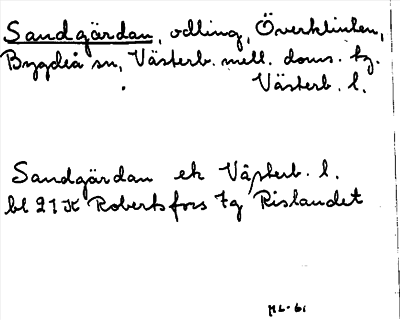 Sandgärdan, odling, Överklinten,
Bygdeå sn, Västerb. mell. doms. tg.
Västerb. l.
Sandgärdan ek Västerb. l.
bl 21 K Robertsfors 7g Rislandet